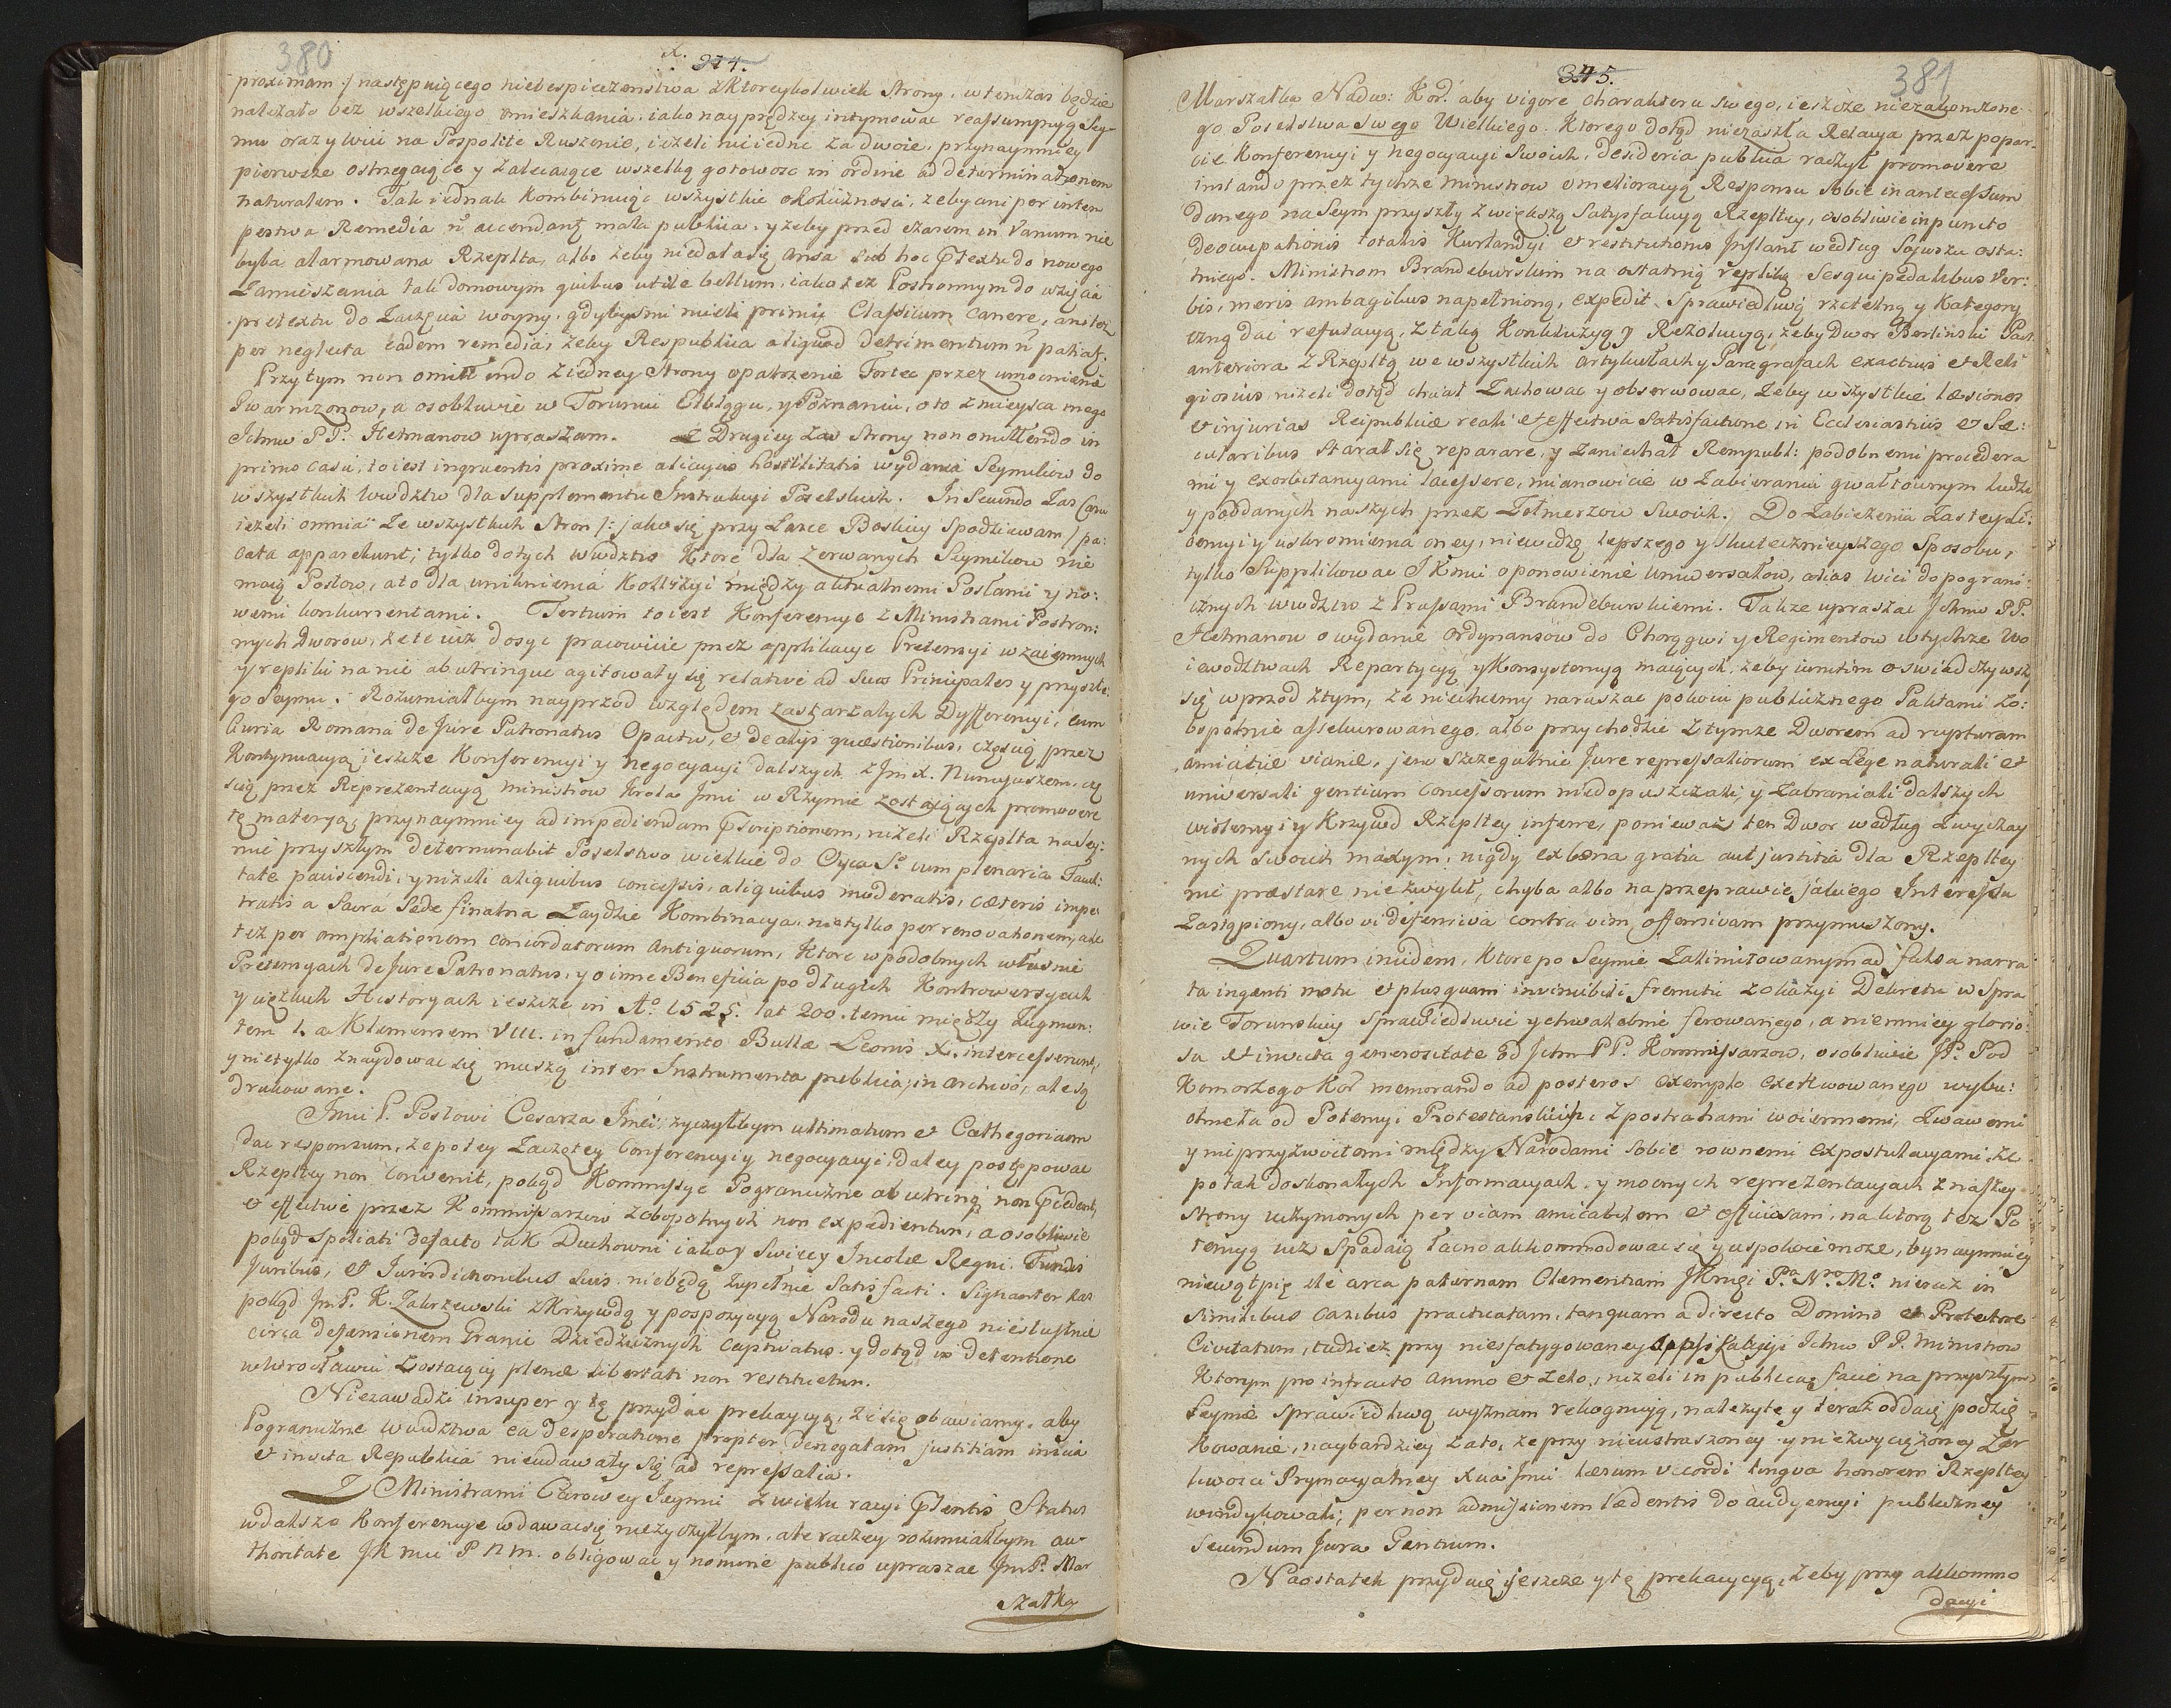 380
x.
374.
proximam :/ następuiącego niebespieczenstwa z Ktoreykolwiek Strony. wtenczas będzie
należało bez wszelkiego omieszkania. iako nayprędzey intymowac reassumpcyą Sey-
mu oraz y wici na Pospolite Ruszenie, ieżeli nie iedne za dwoie. przynaymniey
pierwsze ostrzegaiące y zalecaiące wszelką gotowosc in ordine ad determinationem
naturalem. Tak iednak Kombinuiąc wszystkie okolicznosci, zeby ani per intem
pestiva Remedia n accendant mala publica. y żeby przed czasem in Vanum nie
była alarmowana Rzeplta, albo żeby niedała się ansa sub hoc prtextu do nowego
Zamieszania tak domowym quibus utile bellum, iako też Postronnym do wzięcia
pretextu do Zaczęcia woyny. gdybysmi mieli primi Classicum Canere, ani też
per neglecta eadem remedia, żeby Respublica aliquod detrimentum n patiat.
Przytym non omittendo z iedney Strony opatrzenie Fortec przez umocnienie
Gwarnizonow, a osobliwie w Toruniu Elblągu, y Poznaniu, o to z mieysca mego
Ichmc PP. Hetmanow upraszam. Z Drugiey zas Strony non omittendo in
primo casu, to iest ingruentis proxime alicuius hostilitatis wydania Seymikow do
wszystkich Wwdztw dla supplementu Instrukcyi Poselskich. In Secundo zas Casu
ieżeli omnia ze wszystkich Stron /: iako się przy Łasce Boskiey spodziewam /: pa-
cata apparebunt; tylko do tych wwdztw Ktore dla zerwanych Seymikow nie
maią Posłow, a to dla uniknienia Kollizyi między aktualnemi Posłami y no:
wemi konkurrentami. Tertium to iest Konferencye z Ministrami Postron:
nych Dworow, że te iuż dosyc pracowicie przez applikacye Pretensyi wzaiemnych
y repliki na nie ab utrinque agitowały się relative ad suos Principales y przyszłe:
go Seymu. Rozumiałbym nayprzod względem zastarzałych Dyfferencyi, cum
Curia Romana de Jure Patronatus Opactw, et de alijs quaestionibus, częscią przez
Kontynuacyą ieszcze Konferencyi y negocyacyi dalszych z Jm X. Nuncyuszem, czę
scią przez Reprezentacyą ministrow Krola Jmci w Rzymie zostaiących promovere
tę materyą, przynaymniey ad impediendam prscriptionem, niżeli Rzeplta na Sey:
mie przyszłym determinabit Poselstwo wielkie do Oyca So cum plenaria Facul:
tate paciscendi, y niżeli aliquibus concessis, aliquibus moderatis, caeteris impe
tratis a Sacra Sede finalna Zaydzie Kombinacya, nie tylko per renovationem, ale
też per ampliationem concordatorum antiquorum, Ktore w podobnych własnie
Pretensyach de Jure Patronatus, y o inne Beneficia po długich Kontrowersyach
y ciężkich Historyach ieszcze in Ao 1525. lat 200. temu między Zugmun:
tem I. a Klemensem VIII. in fundamento Bullae Leonis X. intercesserunt,
y nietylko znaydowac się muszą inter Instrumenta publica, in archivo, ale są
drukowane.
Jmci P. Posłowi Cesarza Jmci życzyłbym ultimatum et Cathegoricum
dac responsum, że po tey zaczętey Conferencyi y negocyacyi daley postępowac
Rzepltey non convenit, pokąd Kommissye Pograniczne ab utrinq non prcedent,
et effective przez Kommissarzow zobopolnych non expedientur, a osobliwie
pokąd spoliati defacto tak Duchowni iako y Swiezcy Incolae Regni. Fundis
Juribus, et Jurisdictionibus suis. niebędą zupełnie satisfacti. Signanter zas
pokąd Jm P. K. Zakrzewski z Krzywdą y pospozycyą Narodu naszego niesłusznie
circa defensionem Granic Dziedzicznych captivatus. y dotąd in detentione
w Wrocławiu zostaiący plenae libertati non restituetur.
Niezawadzi insuper y tę przydac prekacyą, że się obawiamy, aby
Pograniczne Wwdztwa ea desperatione propter denegatam justitiam inscia
et invita Republica nieudawały się ad repressalia.
Z Ministrami Carowey Jeymci z wielu racyi prsentis Status
w dalsze Konferencye wdawac się nieżyczyłbym. ale raczey rozumiałbym au-
thoritate JK mci P n m. obligowac y nomine publico upraszac Jm P. Mar
szałka
381
345.
Marszałka Nadw: Kor. aby vigore charakteru swego, ieszcze niezakonczone
go Poselstwa Swego Wielkiego. Ktorego dotąd niezaszła Relacya przez popar-
cie Konferencyi y negocyacyi Swoich, desideria publica raczył promovere
instando przez tychże Ministrow o melioracyą Responsu sobie in antecessum
danego na Seym przyszły z większą Satysfakcyą Rzepltey, osobliwie in puncto
deoccupationis totalis Kurlandyi et restitutionis Jnflant według Sojuszu osta:
tniego. Ministrom Brandeburskim na ostatnią replikę Sesquipedalibus Ver:
bis, meris ambagibus napełnioną, expedit. Sprawiedliwą rzetelną y Kategory
czną dac refutacyą, z taką Konkluzyą y Rezolucyą, żeby Dwor Berlinski Pact.
anteriora z Rzepltą we wszystkich artykułach y Paragrafach exactius et Reli
giosius niżeli dotąd chciał Zachowac y obserwowac, żeby wszystkie laesiones
et injurias Reipublicae reali et effectiva satisfactione in Ecclesiasticis et Sae:
cularibus starał się reparare, y zaniechał Rempubl: podobnemi procedera
mi y exorbitancyami lacessere, mianowicie w Zabieraniu gwałtownym ludzi
y poddanych naszych przez Żołnierzow Swoich. Do zabieżenia Zas tey li:
cencyi y uskromienia oney, niewidzę lepszego y skutecznieyszego Sposobu,
tylko Supplikowac JKmci o ponowienie Uniwersałow, alias wici do pograni
cznych wwdztw z Prussami Brandeburskiemi. Także upraszac Ichmc PP.
Hetmanow o wydanie Ordynansow do Chorągwi y Regimentow w tychże Wo
iewodztwach Repartycyą y Konsystencyą maiących. żeby iunctim oswiadczywszy
się wprzod z tym, że niechcemy naruszac pokoiu publicznego Paktami zo:
bopolnie assekurowanego. albo przychodzic z tymże Dworem ad rupturam
amicitiae vicinae, jen szczegulnie Jure repressaliorum ex Lege naturali et
universali gentium concessorum niedopuszczali, y zabraniali dalszych
wiolencyi y Krzywd Rzepltey inferre, ponieważ ten Dwor według zwyczay
nych swoich maxym, nigdy ex bona gratia aut justitia dla Rzepltey
nic praestare niezwykł, chyba albo na przeprawie jakiego Interessu
zasiąpiony, albo vi defensiva contra vim offensivam przymuszony.
Quartum incidens, Ktore po Seymie Zalimitowanym ad falsa narra
ta ingenti motu et plusquam invincibili fremitu z okazyi Dekretu w Spra
wie Torunskiey sprawiedliwie y chwalebnie ferowanego, a niemniey glorio
sa et invicta generositate od Ichm PP. Kommissarzow, osobliwie JP. Pod
Komorzego Kor memorando ad posteros exemplo exekwowanego wybu:
chneła od Potencyi Protestanskich, z postrachami woiennemi, żwawemi
y nieprzyzwoitemi między Narodami sobie rownemi expostulacyami, że
po tak doskonałych Informacyach, y mocnych reprezentacyach z naszey
strony uczynionych per viam amicabilem et officiosam, na ktorą też Po
tencye iuż spadaią łacno akkommodowac się y uspokoic może, bynaymniey
niewątpię że circa paternam Clementiam JKMci Pa No Mo nieraz in
similibus casibus practicatam, tanquam a directo Domino et Protectore
Civitatum, tudzież przy niesfatygowaney applikacyi Ichmc PP. Ministrow
Ktorym pro infracto animo et zelo, niżeli in publica facie na przyszłym
Seymie sprawiedliwą wyznam rekognicyą, należyte y teraz oddaię podzię
kowanie, naybardziey za to, że przy nieustraszoney y niezwyciężoney Żar
liwosci Prymacyalney Xcia Jmci laesum vecordi lingua honorem Rzepltey
windykowali; per non admissionem laedentis do audyencyi publiczney
Secundum Jura Gentium.
Naostatek przydaię jeszcze y tę prekacyą, żeby przy akkommo
dacyi